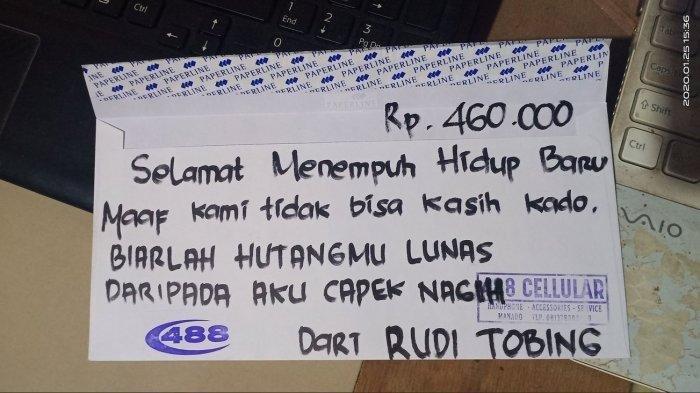 PAPERLINE PAPERLINE PAPERLINE PAPERLINE PAPERLINE
Rp. 460.000
Selamat Menempuh Hidup Baru
Maaf kami tidak bisa kasih kado.
BIARLAH HUTANGMU LUNAS
DARIPADA AKU CAPEK NAGIH
488 CELLULAR
HANDPHONE - ACCESSORIES - SERVICE
MANADO
488
Dari RUDI TOBING
Ctrl
1
End
2
3
Pg Dn
0
Caps
Shift
Ctrl
VAIO
2020.01.25 15:36